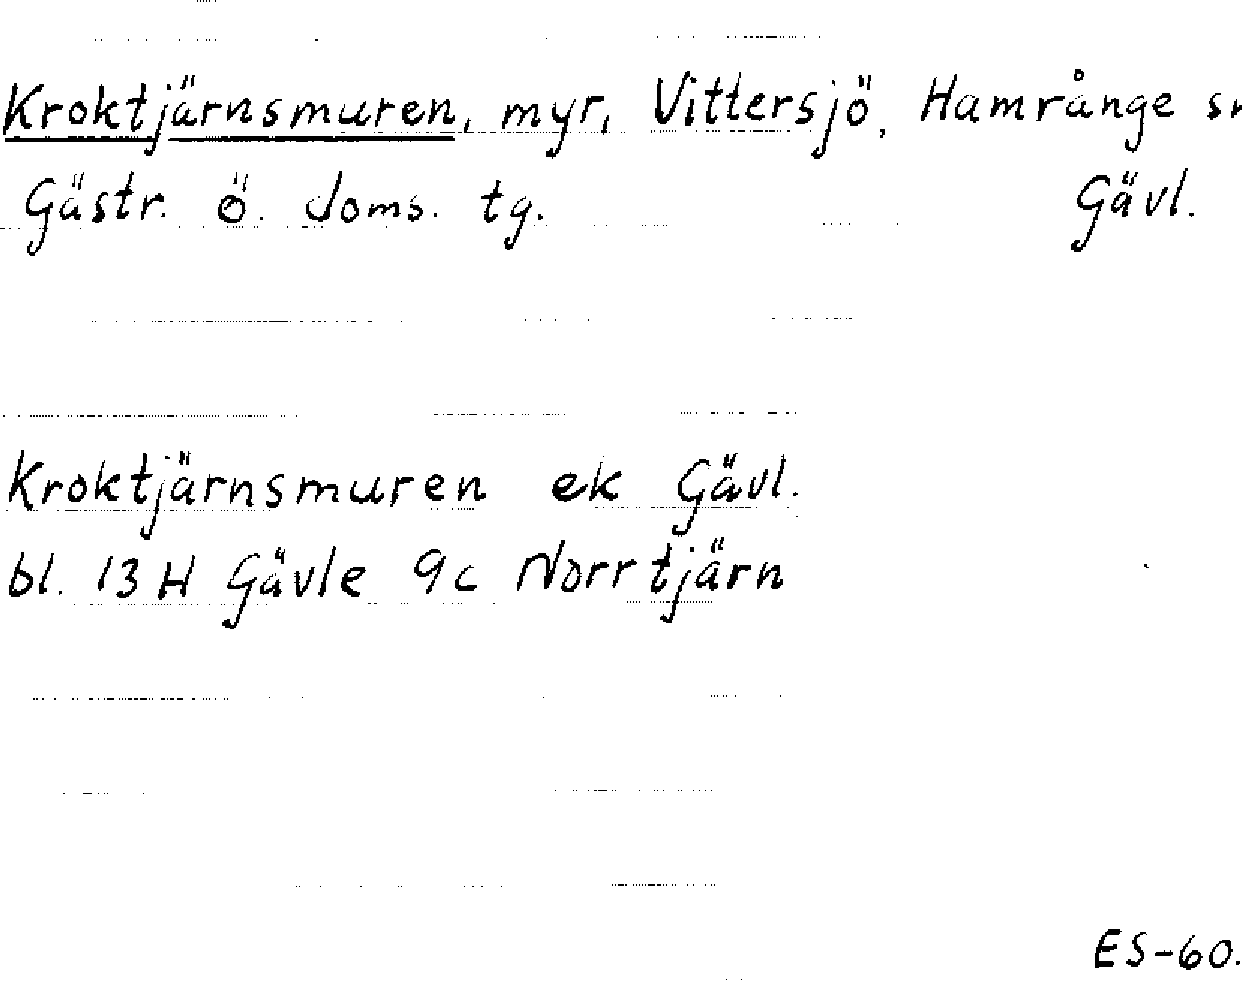 Kroktjärnsmuren, myr, Vittersjö, Hamrånge sn
Gästr. ö. doms. tg. Gävl.
Kroktjärnsmuren ek Gävl.
bl. 13 H Gävle 9c Norrtjärn
ES-60.